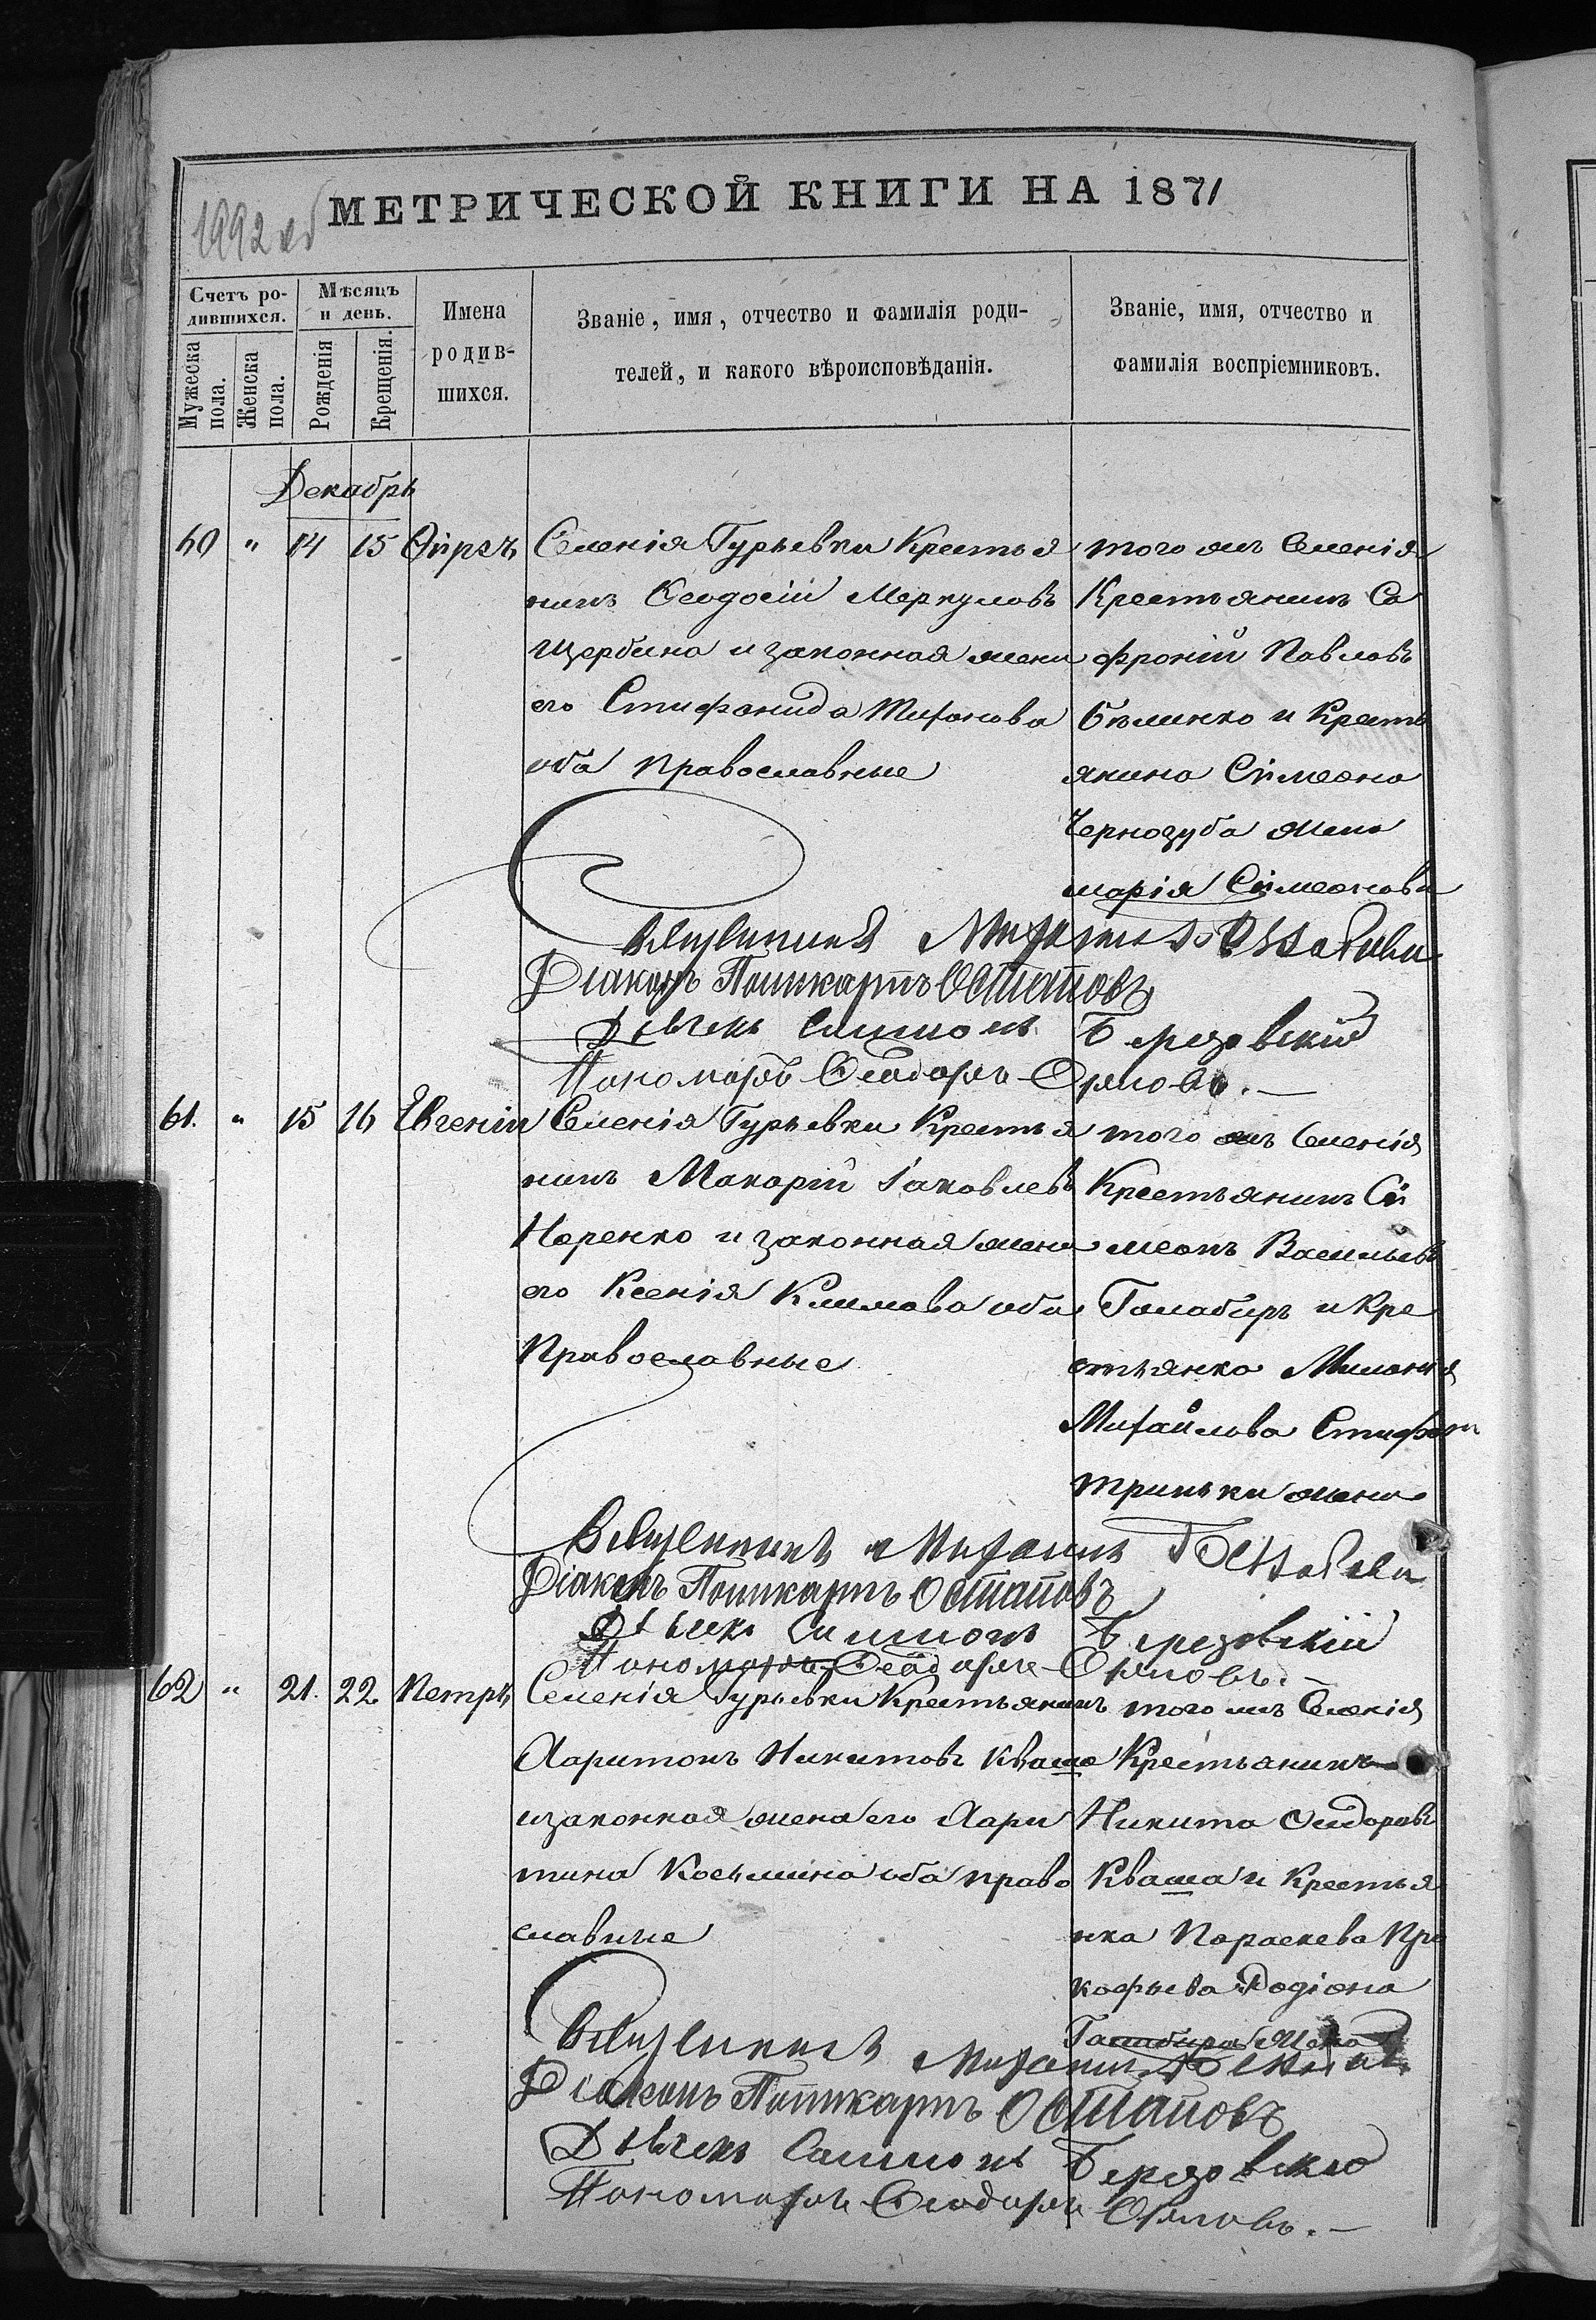 1992 об
МЕТРИЧЕСКОЙ КНИГИ НА 1871
Счетъ ро-
дившихся.
Мужеска
пола.
Женска
пола.
Мѣсяцъ
и день.
Рожденія
Крещенія.
Имена
родив-
шихся.
Званіе, имя, отчество и фамилія роди-
телей, и какого вѣроисповѣданія.
Званіе, имя, отчество и
фамилія воспріемниковъ.
Декабрь
60 " 14 15 Ѳирсъ
Селенія Гурьевки Крестья
нинъ Ѳеодосій Меркуловъ
Щербина и законная жена
его Стифанида Титонова
оба православные
того жъ Селенія
Крестьянинъ Со
фроній Павловъ
Билинко и Кресть
янина Сѵмеона
Чернозуба жена
Марія Сѵмеонова
Священникъ Михаилъ
Діаконъ Поликарпъ Остаповъ
Дьячекъ Симеонъ Березовскій
Пономарь Ѳеодоръ Орловъ.
61. " 15 16 Евгеній
Селенія Гурьевки Крестья
нинъ Макарій Іаковлевъ
Норенко и законная жена
его Ксенія Климова оба
Православные
того жъ Селенія
Крестьянинъ Сѵ
меонъ Васильевъ
Галабиръ и Кре
стьянка Миланія
Михайлова Стифан
Триньки жена
Священникъ Михаилъ
Діаконъ Поликарпъ Остаповъ
Дьячекъ Симеонъ Березовскій
Пономарь Ѳеодоръ Орловъ.
62 " 21. 22 Петръ
Селенія Гурьевки Крестьянинъ
Харитонъ Никитовъ Кваша
и законная жена его Хари
тина Косьмина оба право
славные
того жъ Селенія
Крестьянинъ
Никита Сидоровъ
Кваша и Крестья
нка Параскева Про
кофьева Родіона
Галабира жена
Священникъ Михаилъ
Діаконъ Поликарпъ Остаповъ
Дьячекъ Симеонъ Березовскій
Пономарь Ѳеодоръ Орловъ.